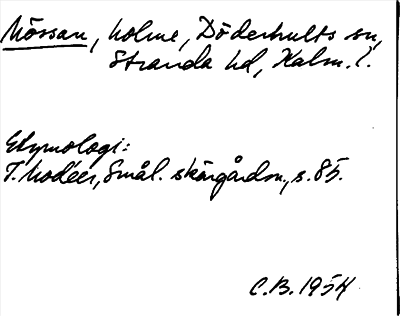 Mössan, holme, Döderhults sn,
Stranda hd, Kalm. l.
Etymologi:
I. Modéer, Smål. skärgårdsn., s. 85.
C.B. 1954